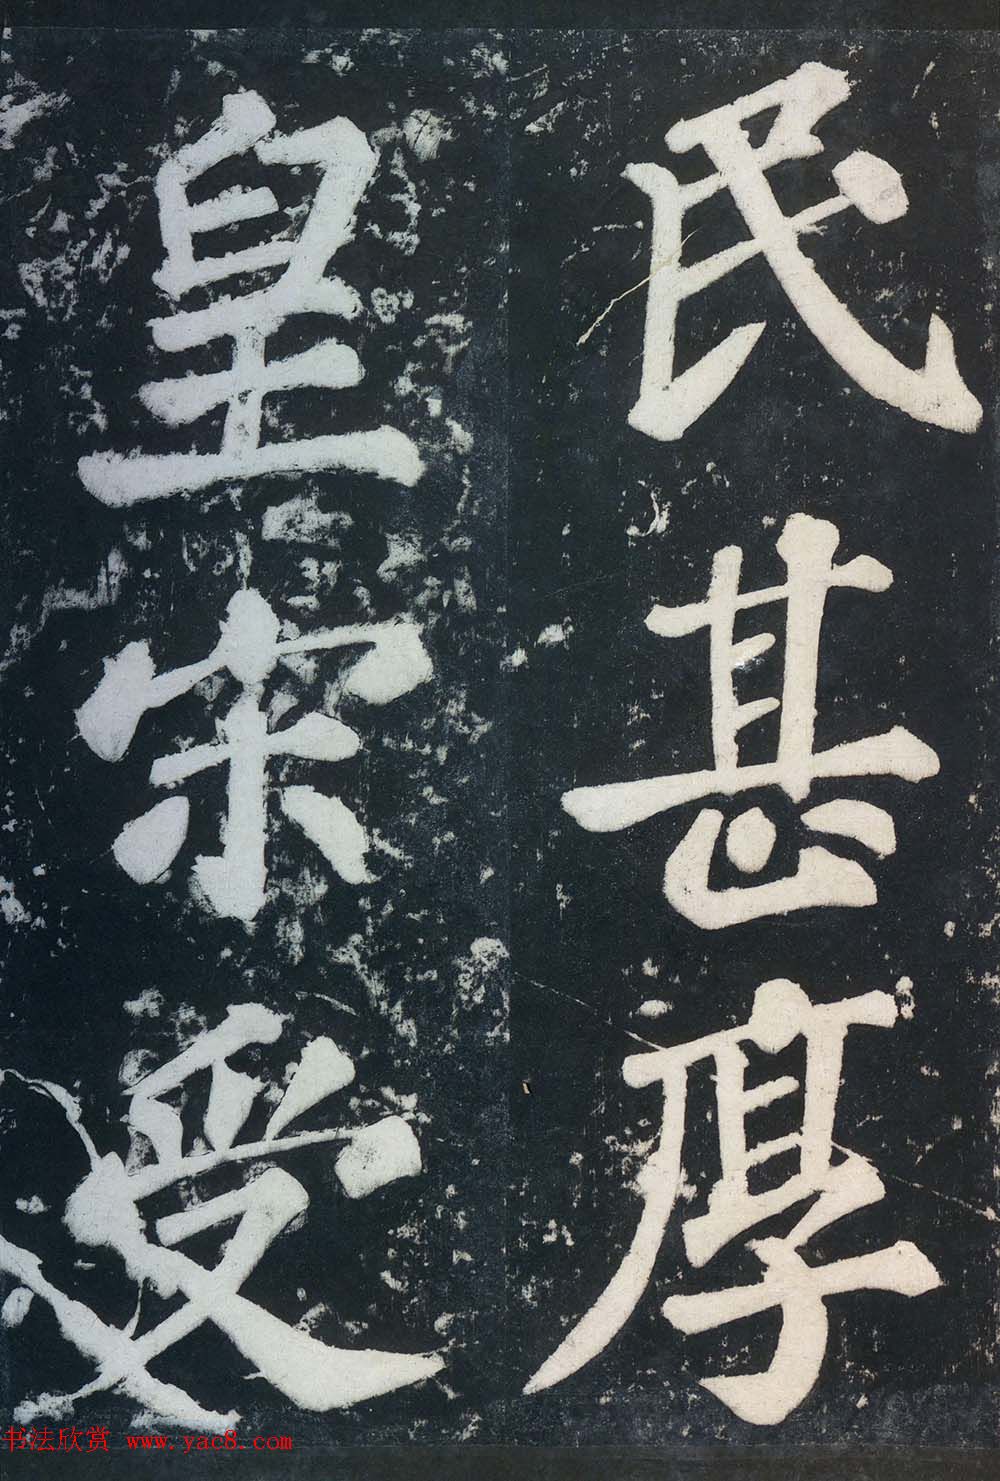 民甚厚
皇宋受
书法欣赏 www.yac8.com